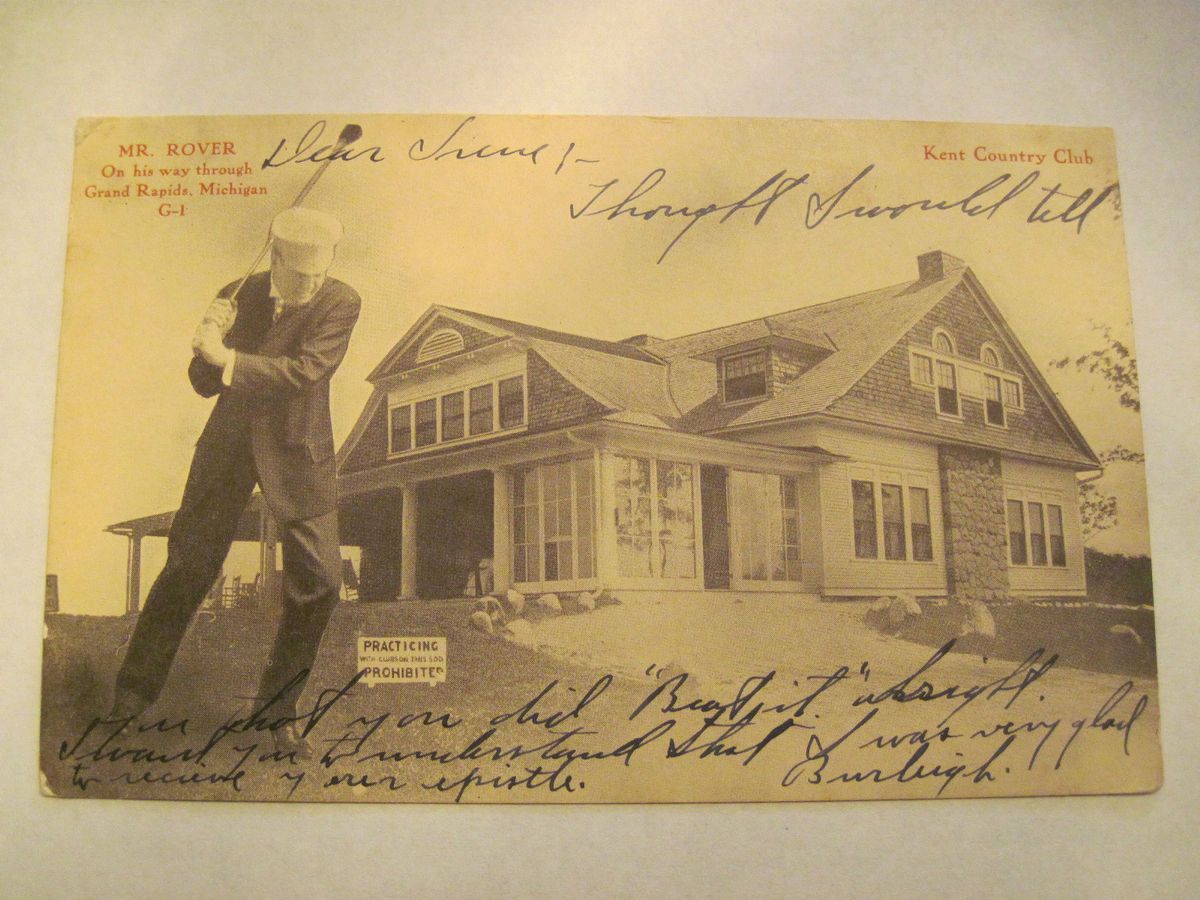 MR. ROVER
On his way through
Grand Rapids, Michigan
G-1
Kent Country Club
Dear Irene;-
Thought I would tell
PRACTICING
WITH CLUBS ON THIS SOD
PROHIBITED
you that you did "Beat it." alright.
I want you to understand that I was very glad
to recieve your epistle. Burleigh.